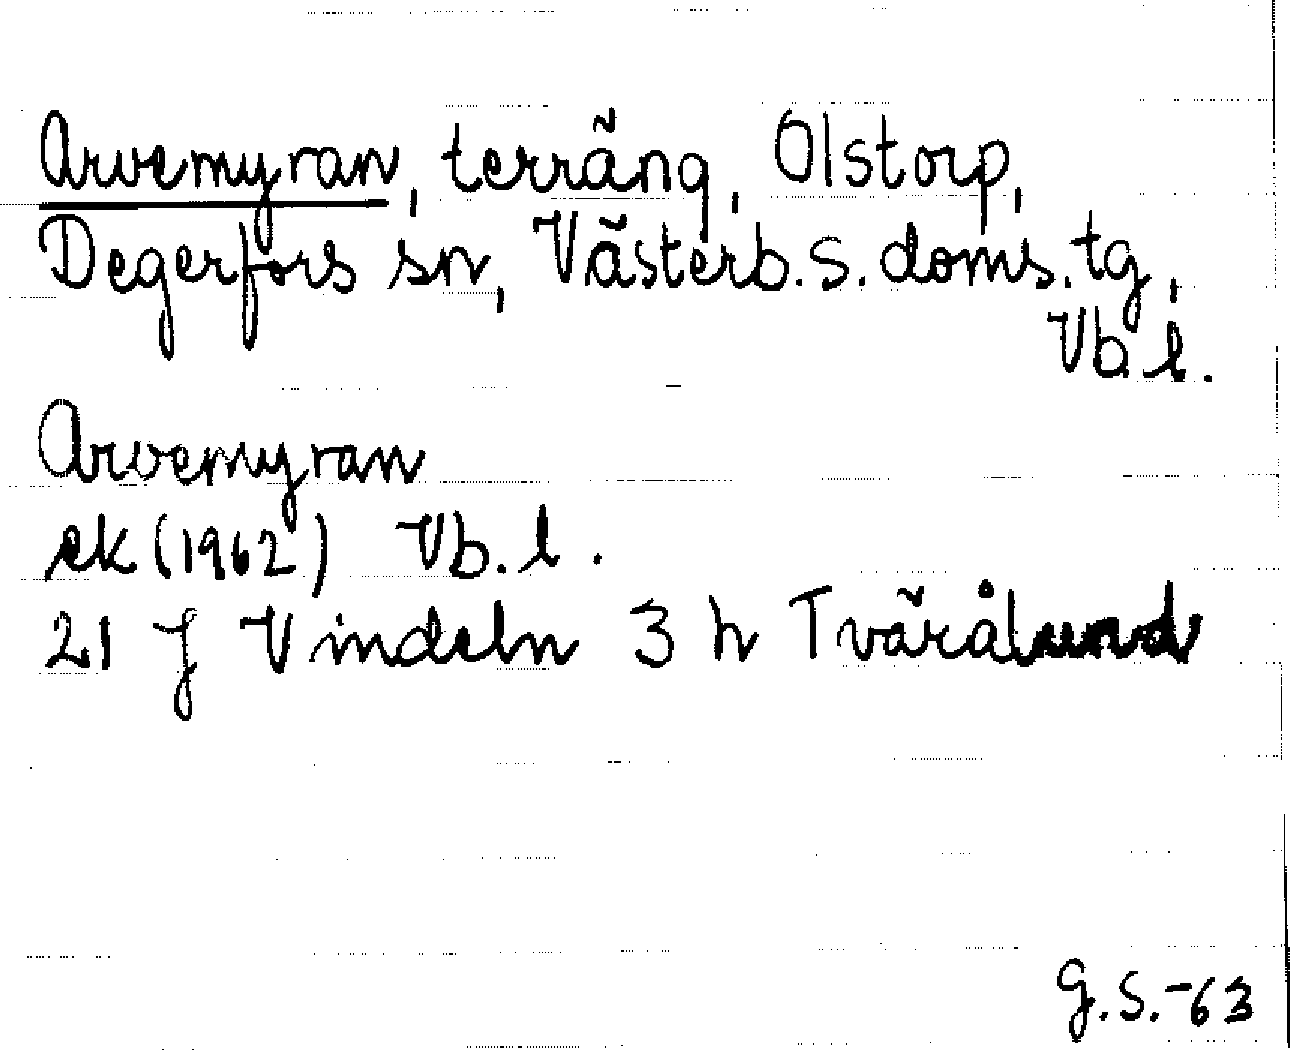 Arvemyran, terräng, Olstorp,
Degerfors sn, Västerb. s. doms. tg,
Vb. l.
Arvemyran
ek (1962) Vb. l.
21 J Vindeln 3 h Tväralund
G.S.-63